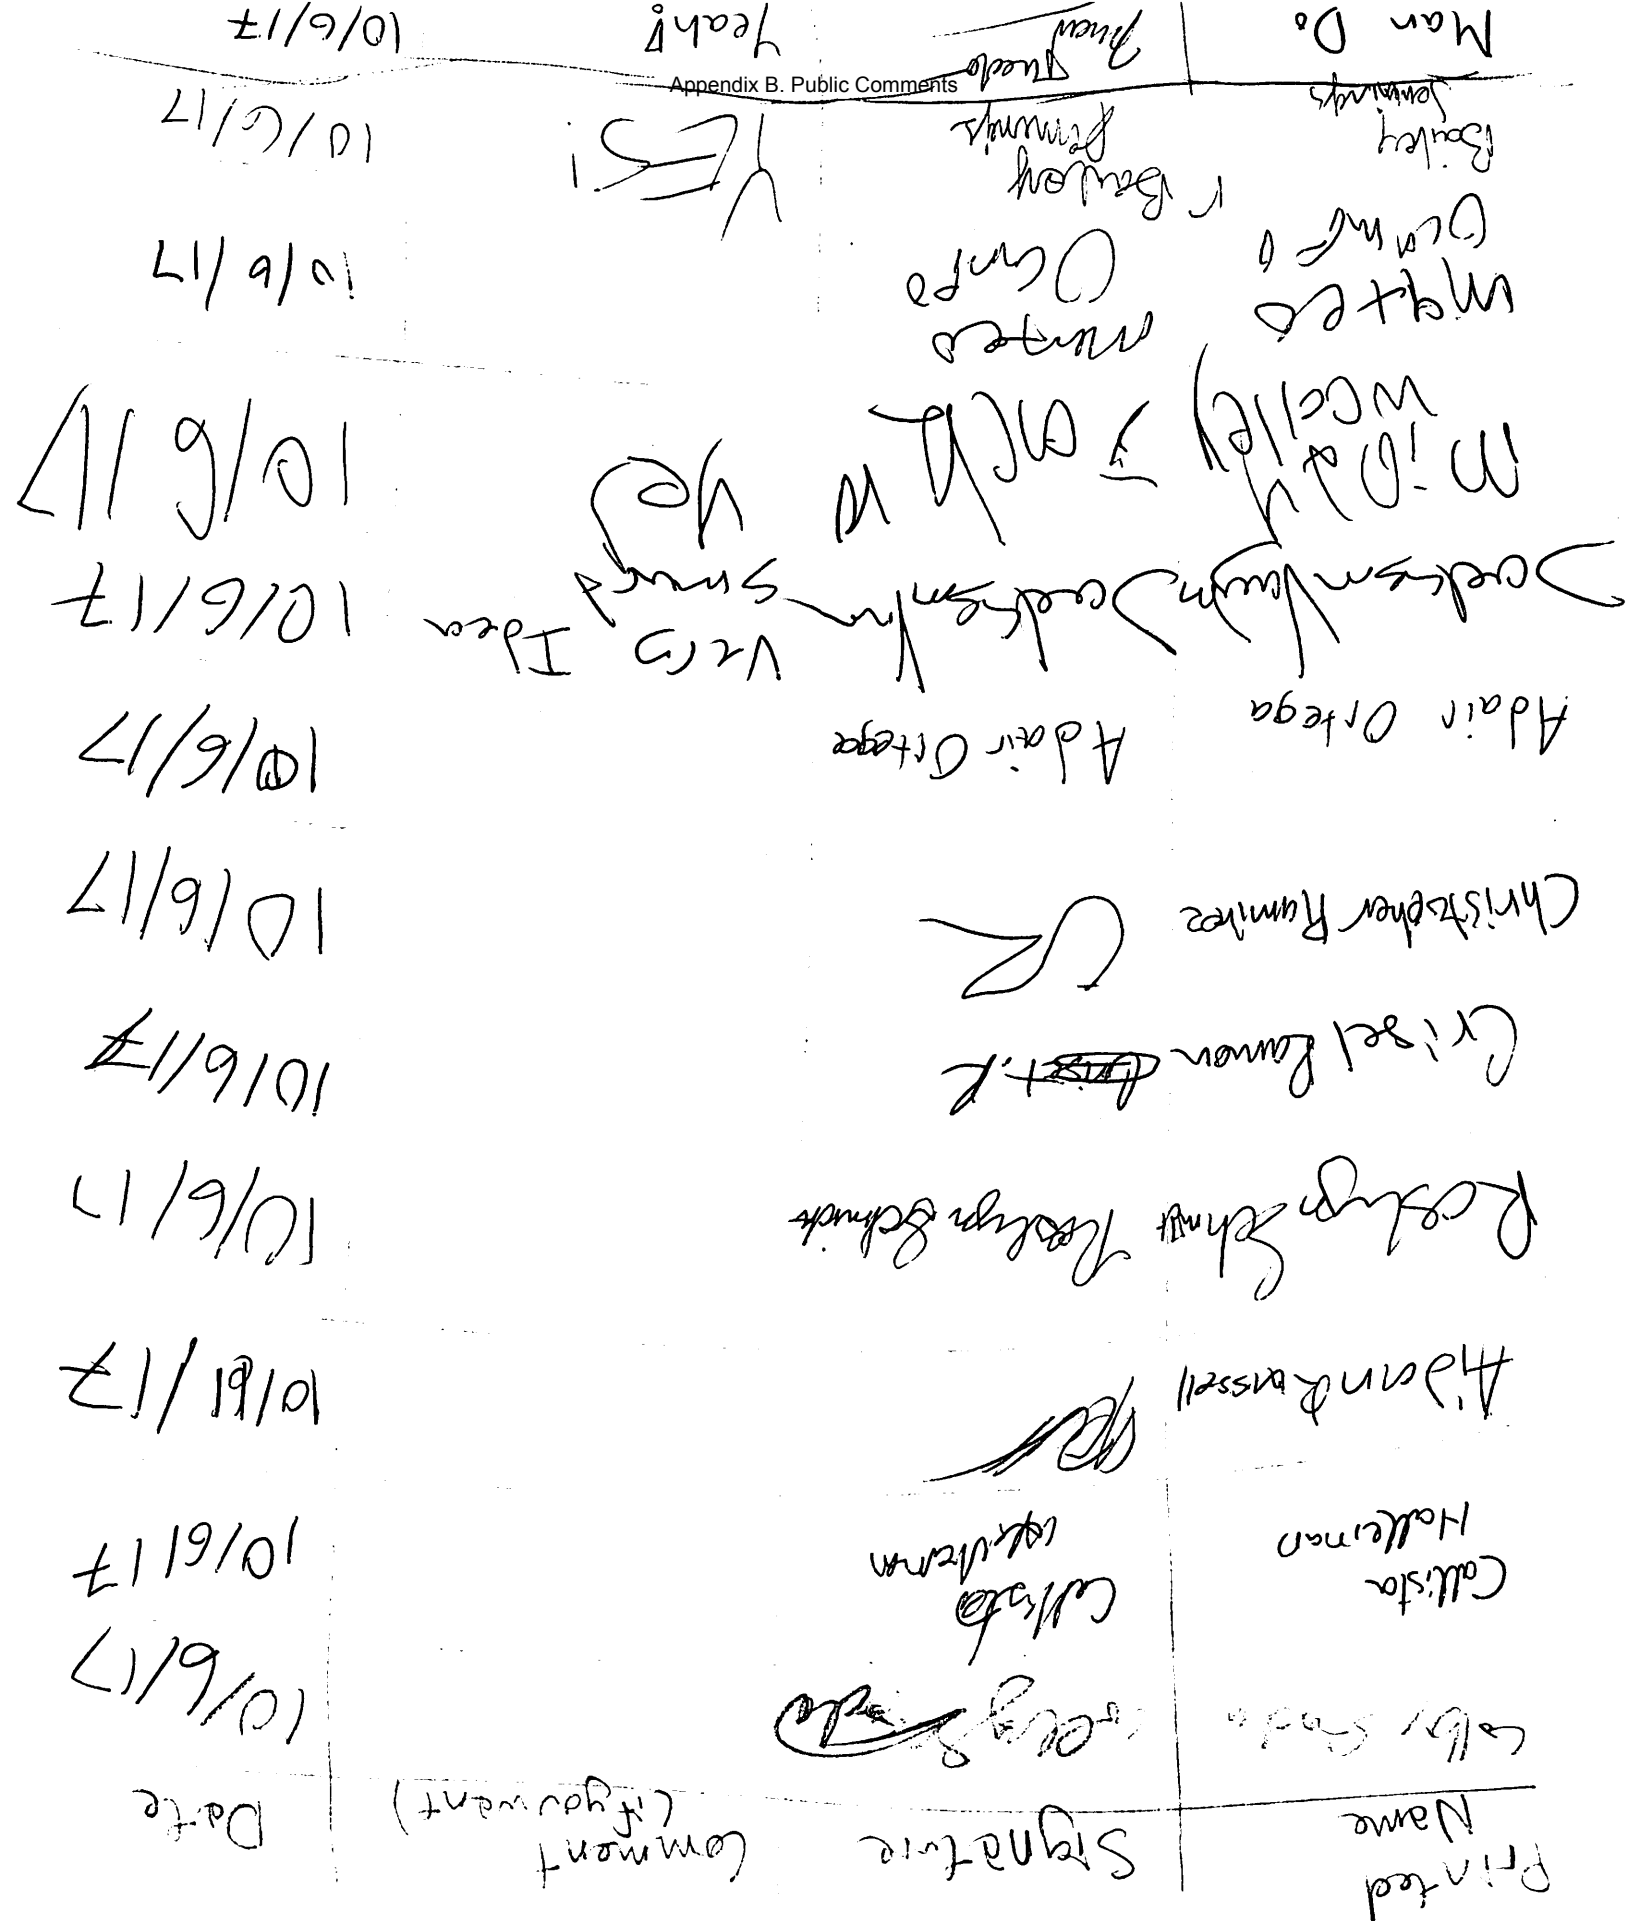 Appendix B. Public Comments
Printed Name Signature Comment (if you want) Date
10/6/17
Callista Halleman Callista 10/6/17
Aidan Russell 10/6/17
Roslyn Schmidt Roslyn Schmidt 10/6/17
Crisel Ramon 10/6/17
Christopher Ramirez CR 10/6/17
Adair Ortega Adair Ortega 10/6/17
Jackson Vaughn Jackson Very Smart Idea 10/6/17
yes 10/6/17
mateo Ocampo mateo Ocampo 10/6/17
Bailey Jennings Bailey Jennings YES! 10/6/17
Man Do Yeah! 10/6/17